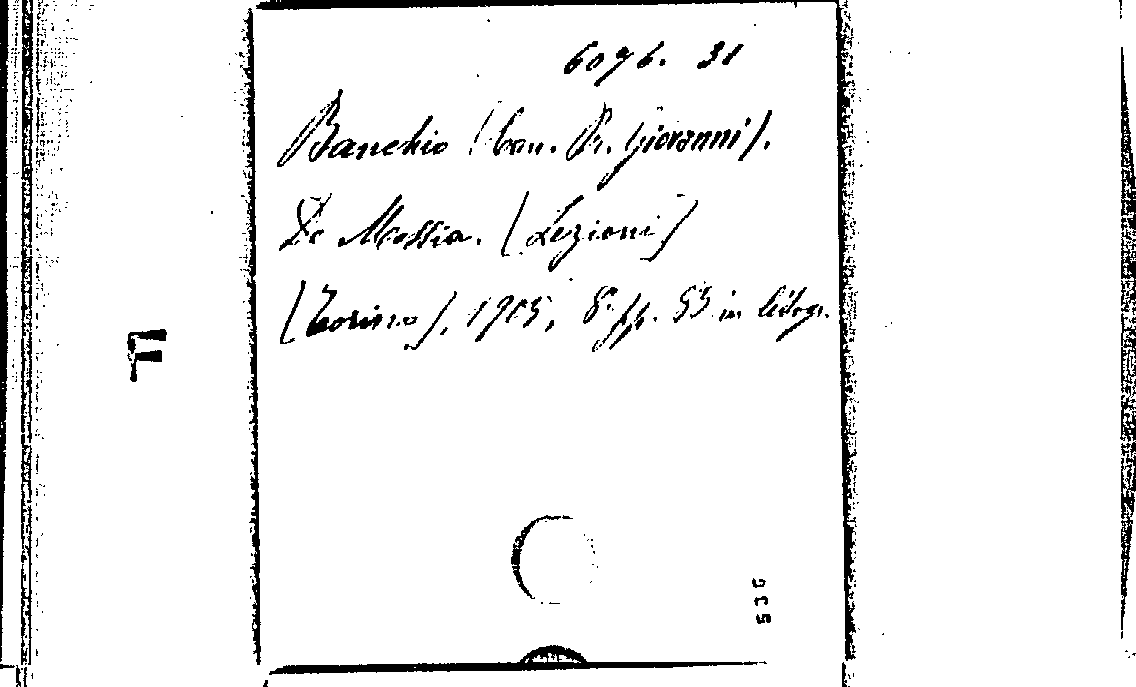 6096. 31
Banchio (Can. Pr. Giovanni).
De Messia. (Lezioni)
(Torino), 1905, 8. pp. 53 in litogr.
536